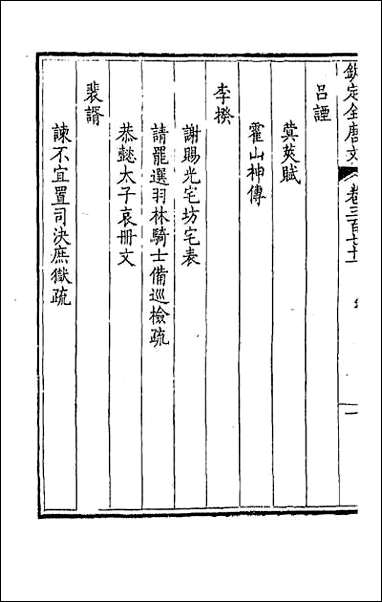 欽定全唐文 卷三百七十一
呂諲
蓂莢賦
霍山神傳
李揆
謝賜光宅坊宅表
請罷選羽林騎士備巡檢疏
恭懿太子哀冊文
裴諝
諫不宜置司決庶獄疏